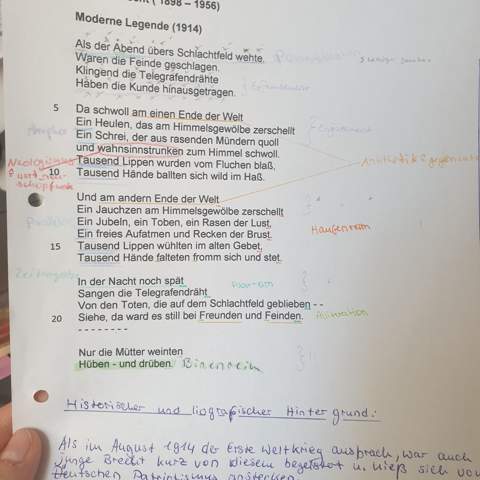 ( 1898 – 1956)
Moderne Legende (1914)
Als der Abend übers Schlachtfeld wehte.
Waren die Feinde geschlagen.
Klingend die Telegrafendrähte
Haben die Kunde hinausgetragen.
5 Da schwoll am einen Ende der Welt
Ein Heulen, das am Himmelsgewölbe zerschellt
Ein Schrei, der aus rasenden Mündern quoll
und wahnsinnstrunken zum Himmel schwoll.
Tausend Lippen wurden vom Fluchen blaß,
10 Tausend Hände ballten sich wild im Haß.
Neologismus
Wort neu-
schöpfung
Und am andern Ende der Welt
Ein Jauchzen am Himmelsgewölbe zerschellt
Ein Jubeln, ein Toben, ein Rasen der Lust,
Ein freies Aufatmen und Recken der Brust.
Haufenreim
15 Tausend Lippen wühlten im alten Gebet,
Tausend Hände falteten fromm sich und stet.
In der Nacht noch spät
Sangen die Telegrafendräht
Paarreim
Von den Toten, die auf dem Schlachtfeld geblieben - -
20 Siehe, da ward es still bei Freunden und Feinden.
Alliteration
- - - - - - - -
Nur die Mütter weinten
Hüben - und drüben. Binnenreim
Historischer und biografischer Hintergrund:
Als im August 1914 der Erste Weltkrieg ausbrach, war auch
junge Brecht kurz von diesem begeistert u. ließ sich vom
Deutschen Patriotismus anstecken.